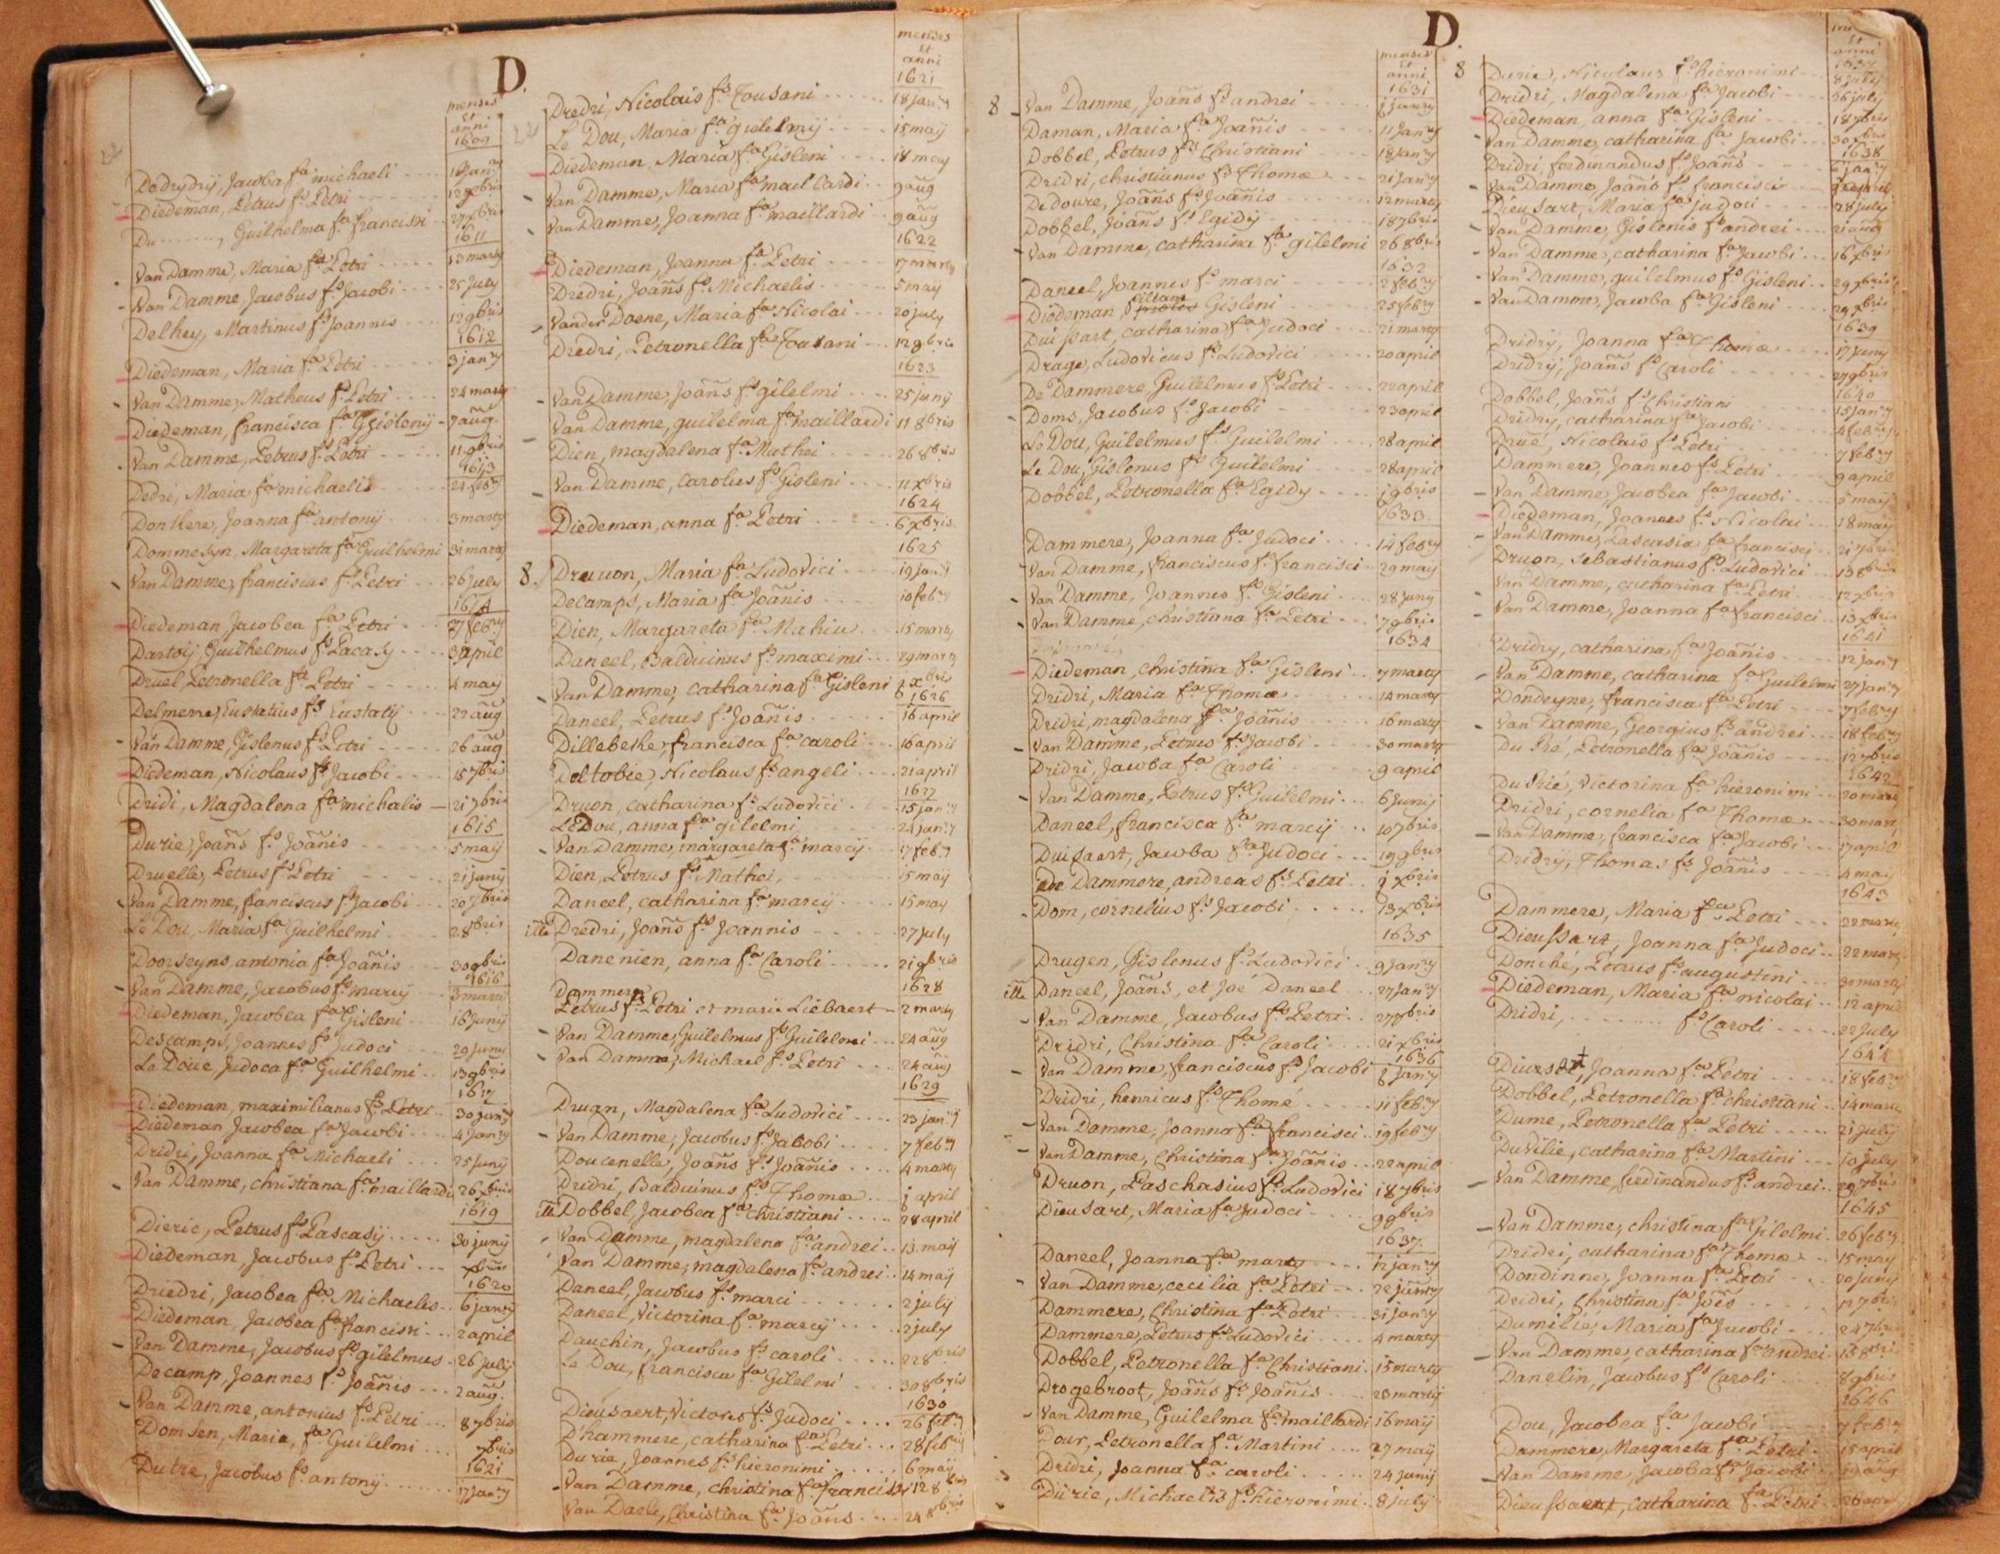 D.
menses
et
anni
1609
Dedrydrÿ, Jacoba fa michaeli
Diedeman, Petrus fs Petri
Du, Guilhelma fa francisci
1611
Van Damme, Maria fa Petri 13 marty
Van Damme, Jacobus fs Jacobi 25 july
Delhey, Martinus fs Joannis 12 9bris
1612
Diedeman, Maria fa Petri 3 janry
Van Damme, Matheus fs Petri 24 marty
Diedeman, francisca fa Gislenÿ 7 aug
Van Damme, Petrus fs Petri 11 9bris
1613
Dedri, Maria fa michaelis 21 febry
Donkere, Joanna fa antonÿ 3 marty
Dommesyn, Margareta fa Guilhelmi 31 marty
Van Damme, franciscus fs Petri 26 july
1614
Diedeman, Jacobea fa Petri 27 febry
Dartoij Guilhelmus fs 3 april
Druel Petronella fa Petri 4 may
Delmerre, Eustatius fs Eustatÿ 22 aug
Van Damme, Gislenus fs Petri 26 aug
Diedeman, Nicolaus fs Jacobi 15 7bris
Dridi, Magdalena fa michalis 21 7bris
1615
Durie, Joañs fs Joañis 5 maÿ
Druelle, Petrus fs Petri 21 junÿ
Van Damme, franciscus fs Jacobi 20 7bris
Le Dou, Maria fa Guilhelmi 28bris
Doorseyns, antonia fa Joañis 30 9bris
1616
Van Damme, Jacobus fs marcÿ 3 marti
Diedeman, Jacobea fa Gisleni 16 junÿ
Descamps, Joannes fs Judoci 29 juni
La Doue, Judoca fa Guilhelmi 13 9bris
1617
Diedeman, maximilianus fs Petri 30 janry
Diedeman Jacobea fa Jacobi 4 janry
Dridri, Joanna fa Michaeli 25 junÿ
Van Damme, christiana fa maillardi 26 xbris
1619
Dieric, Petrus fs Pascasÿ 30 junÿ
Diedeman, Jacobus fs Petri xbris
1620
Driedri, Jacobea fa Michaelis 6 janry
Diedeman, Jacobea fa francisci 2 april
Van Damme, Jacobus fs gilelmus 26 july
Decamp, Joannes fs Joañis 2 aug
Van Damme, antonius fs Petri 8 7bris
Domsen, Maria, fa Guilelmi 7bris
1621
Dutre, Jacobus fs antonÿ 17 janry
menses
et
anni
1621
Dredri, Nicolais fs Tousani 18 janry
Le Dou, Maria fa guilelmÿ 15 maÿ
Diedeman, Maria fa Gisleni 18 may
Van Damme, Maria fa maillardi 9 aug
Van Damme, Joanna fa maillardi 9 aug
1622
Diedeman, Joanna fa Petri 17 marty
Dredri, Joañs fs Michaelis 5 may
Vander Doene, Maria fa Nicolai 20 july
Dredri, Petronella fa Tousani 12 9bris
1623
Van Damme, Joañs fs gilelmi 25 junÿ
Van Damme, guilelma fa maillardi 11 8bris
Dien, magdalena fa Mathei 26 8bris
Van Damme, Carolus fs Gisleni 11 xbris
1624
Diedeman, anna fa Petri 6 xbris
1625
8. Druuon, Maria fa Ludovici 19 janry
Decamps, Maria fa Joañis 10 febry
Dien, Margareta fa Mahiu 15 marty
Daneel, Balduinus fs maximi 29 marty
Van Damme, catharina fa Gisleni xbris
1626
Daneel, Petrus fs Joañis 16 april
Dillebeke, francisca fa caroli 16 april
Deltobie, Nicolaus fs angeli 21 april
1627
Druon, catharina fa Ludovici 15 janry
Le Dou, anna fa gilelmi 24 janry
Van Damme, margareta fa marcÿ 17 febry
Dien, Petrus fs Mathei 15 maÿ
Daneel, catharina fa marcÿ 15 may
Dredri, Joañs fs Joannis 27 july
Danenien, anna fa Caroli 21 9bris
1628
Dammere
Petrus fs Petri et marie Liebaert 2 marty
Van Damme, Guilelmus fs Guilelmi 24 aug
Van Damme, Michael fs Petri 24 aug
1629
Druon, Magdalena fa Ludovici 23 janry
Van Damme, Jacobus fs Jacobi 7 febry
Doucenelle, Joañs fs Joañis 4 marty
Dridri, Balduinus fs Thomæ april
Dobbel, Jacobea fa christiani 28 april
Van Damme, magdalena fa andrei 13 maÿ
Van Damme, magdalena fa andrei 14 maÿ
Daneel, Jacobus fs marci 2 julÿ
Daneel, Victorina fa marcÿ 2 july
Dauchin, Jacobus fs caroli 22 8bris
Le Dou, francisca fa Gilelmi 30 8bris
1630
Dieusaert, Victoris fs Judoci 26 feb.
D'hammere, catharina fa Petri 28 febry
Durie, Joannes fs hieronimi 6 maÿ
Van Damme, christina fa francisci 12 8bris
Van Daele, Christina fa Joañs 24 8bris
D.
menses
et
anni
1631
8 Van Damme, Joañs fs andrei 6 janry
Daman, Maria fa Joañis 11 janry
Dobbel, Petrus fs Christiani 18 janry
Dridri, christianus fs Thomæ 21 janry
Dedoure, Joañs fs Joañis 12 marty
Dobbel, Joañs fs Egidÿ 18 7bris
Van Damme, catharina fa gilelmi 26 8bris
1632
Daneel, Joannes fs marci 2 febry
Diedeman, Gisleni 25 febry
Duissart, catharina fa Judoci 21 marty
Drage, Ludovicus fs Ludovici 20 april
De Dammere, Guilelmus fs Petri 22 april
Doms, Jacobus fs Jacobi 23 april
Le Dou, Guilelmus fs Guilelmi 28 april
Le Dou, Gislenus fs Guilelmi 28 april
Dobbel, Petronella fa Egidy 1 9bris
1633
Dammere, Joanna fa Judoci 14 febry
Van Damme, franciscus fs francisci 29 may
Van Damme, Joannes fs Gisleni 28 juny
Van Damme, christiana fa Petri 17 9bris
1634
Diedeman, christina fa Gisleni 7 marty
Dridri, Maria fa Thomæ 14 marty
Dridri magdalena fa Joañis 16 marty
Van Damme, Petrus fs Jacobi 30 marty
Dridri, Jacoba fa Caroli 9 april
Van Damme, Petrus fs Guilelmi 6 junÿ
Daneel, francisca fa marcÿ 10 7bris
Duisaert, Jacoba fa Judoci 19 9bris
De Dammere, andreas fs Petri xbris
Dom, cornelius fs Jacobi 13 xbris
1635
Drugen, Gislenus fs Ludovici 9 janry
Daneel, Joañs, et Joe Daneel 27 janry
Van Damme, Jacobus fs Petri 27 7bris
Dridri, Christina fa Caroli 21 xbris
1636
Van Damme, franciscus fs Jacobi 6 janry
Dridri, henricus fs Thomé 11 febry
Van Damme, Joanna fa francisci 19 febry
Van Damme, Christina fa Joañis 22 april
Druon, Paschasius fs Ludovici 18 7bris
Dieusart, Maria fa Judoci 9 9bris
1637
Daneel, Joanna fa marty 12 janry
Van Damme, cecilia fa Petri 22 janry
Dammere, Christina fa Petri 31 janry
Dammere, Petrus fs Ludovici 4 marty
Dobbel, Petronella fa Christiani 15 marty
Drogebroot, Joañs fs Joañis 28 marty
Van Damme, Guilelma fa maillardi 16 maÿ
Dour, Petronella fa Martini 27 maÿ
Dridri, Joanna fa caroli 24 junÿ
Durie, Michaelis fs hieronimi 8 july
et
anni
1637
8 Durie, Nicolaus fs hieronimi 8 july
Dridri, Magdalena fa Jacobi 26 july
Diedeman, anna fa Gisleni 18 7bris
Van Damme, catharina fa Jacobi 30 xbris
1638
Dridri, ferdinandus fs Joañs 6 janry
Van Damme, Joañs fs francisci
Dieusart, Maria fa judoci 28 july
Van Damme, Gislenis fs andrei 21 aug
Van Damme, catharina fa Jacobi 16 xbris
Van Damme, guilelmus fs Gisleni 29 xbris
Van Damme, Jacoba fa Gisleni 29 xbris
1639
Dridrÿ, Joanna fa Thomæ 17 juny
Dridrÿ, Joañs fs Caroli 27 9bris
1640
Dobbel, Joañs fs Christiani 15 janry
Dridry, catharina fa Jacobi 4 febry
Drué, Nicolais fs Petri 7 febry
Dammere, Joannes fs Petri 9 april
Van Damme, Jacobea fa Jacobi 5 maÿ
Diedeman, Joannes fs Nicolai 18 maÿ
Van Damme, Pascasia fa francisci
Druon, Sebastianus fs Ludovici 13 8bris
Van Damme, catharina fa Petri 12 xbris
Van Damme, Joanna fa francisci 13 xbris
1641
Dridry, catharina, fa Joañis 12 janry
Van Damme, catharina fa Guilelmi 27 janry
Dondeyne, francisca fa Petri 7 febry
Van Damme, Georgius fs andrei 18 febry
Du Pré, Petronella fa Joañis 12 7bris
1642
Du Rié, Victorina fa hieronimi 20 marty
Dridri, cornelia fa Thomæ 30 marty
Van Damme, francisca fa Jacobi 17 april
Dridrÿ, Thomas fs Joañis 4 maÿ
1643
Dammere, Maria fa Petri 22 marty
Dieussart, Joanna fa Judoci 22 marty
Donché, Petrus fs augustini 30 marty
Diedeman, Maria fa nicolai 12 april
Dridri, fs Caroli 22 july
1644
Dieusart, Joanna fa Petri 18 febry
Dobbel, Petronella fa christiani 14 marty
Dume, Petronella fa Petri 21 july
Du Vilie, catharina fa Martini 10 july
Van Damme, ferdinandus fs andrei 29 7bris
1645
Van Damme, christina fa Gilelmi 26 febry
Dridri, catharina fa Thomæ 15 may
Dondinne, Joanna fa Petri 20 junÿ
Dridri, Christina fa Joẽs
Dumilie, Maria fa Jacobi 24 7bris
Van Damme, catharina fa andrei
Danelin, Jacobus fs Caroli 8 9bris
1646
Dou, Jacobea fa Jacobi 7 febry
Dammere, Margareta fa Petri 15 april
Van Damme, Jacoba fa Jacobi
Dieussaert, catharina fa Petri